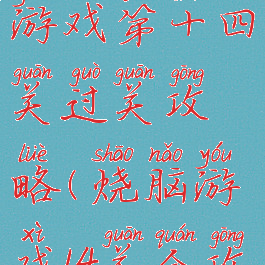 游戏第十四
guān guò guān gōng
关过关攻
lüè shāo nǎo yóu
略(烧脑游
xì guān quán gōng
戏14关全攻